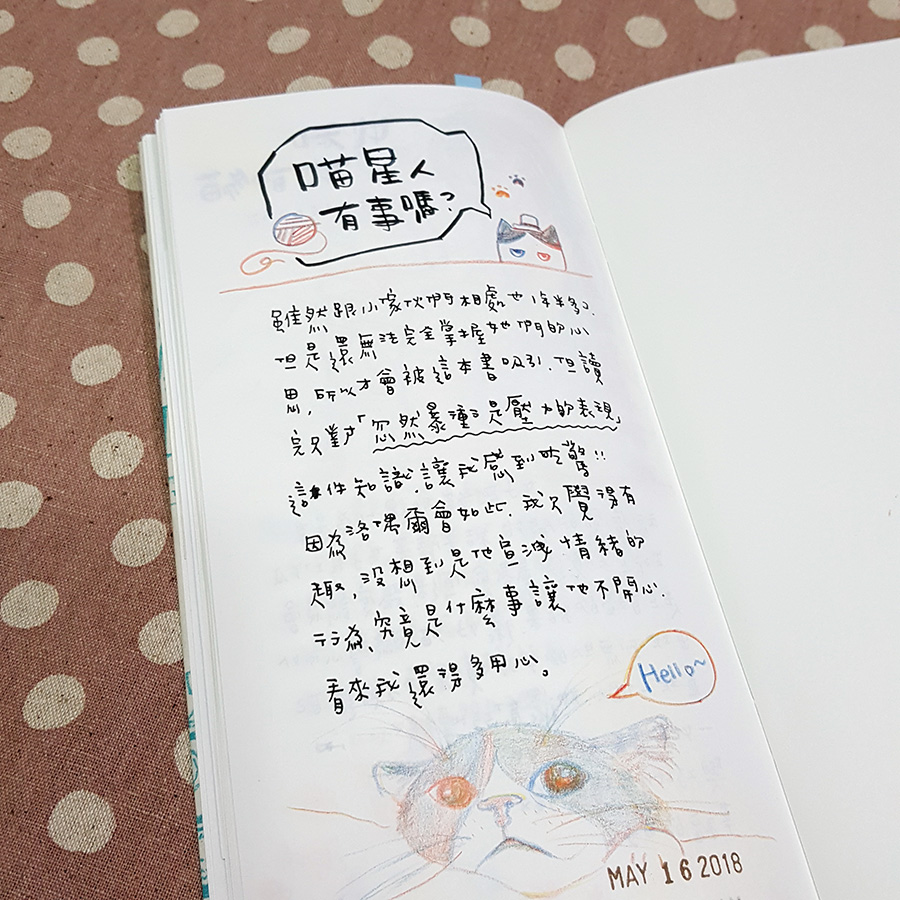 喵星人
有事嗎?
雖然跟小傢伙們相處也1年半多了.
但是還無法完全掌握她們的心
思,所以才會被這本書吸引.但讀
完只對「忽然暴衝是壓力的表現」
這件知識,讓我感到吃驚!!
因為洛偶爾會如此.我只覺得有
趣,沒想到是他宣洩情緒的
行為、究竟是什麼事讓他不開心.
看來我還得多用心。
Hello~
MAY 16 2018